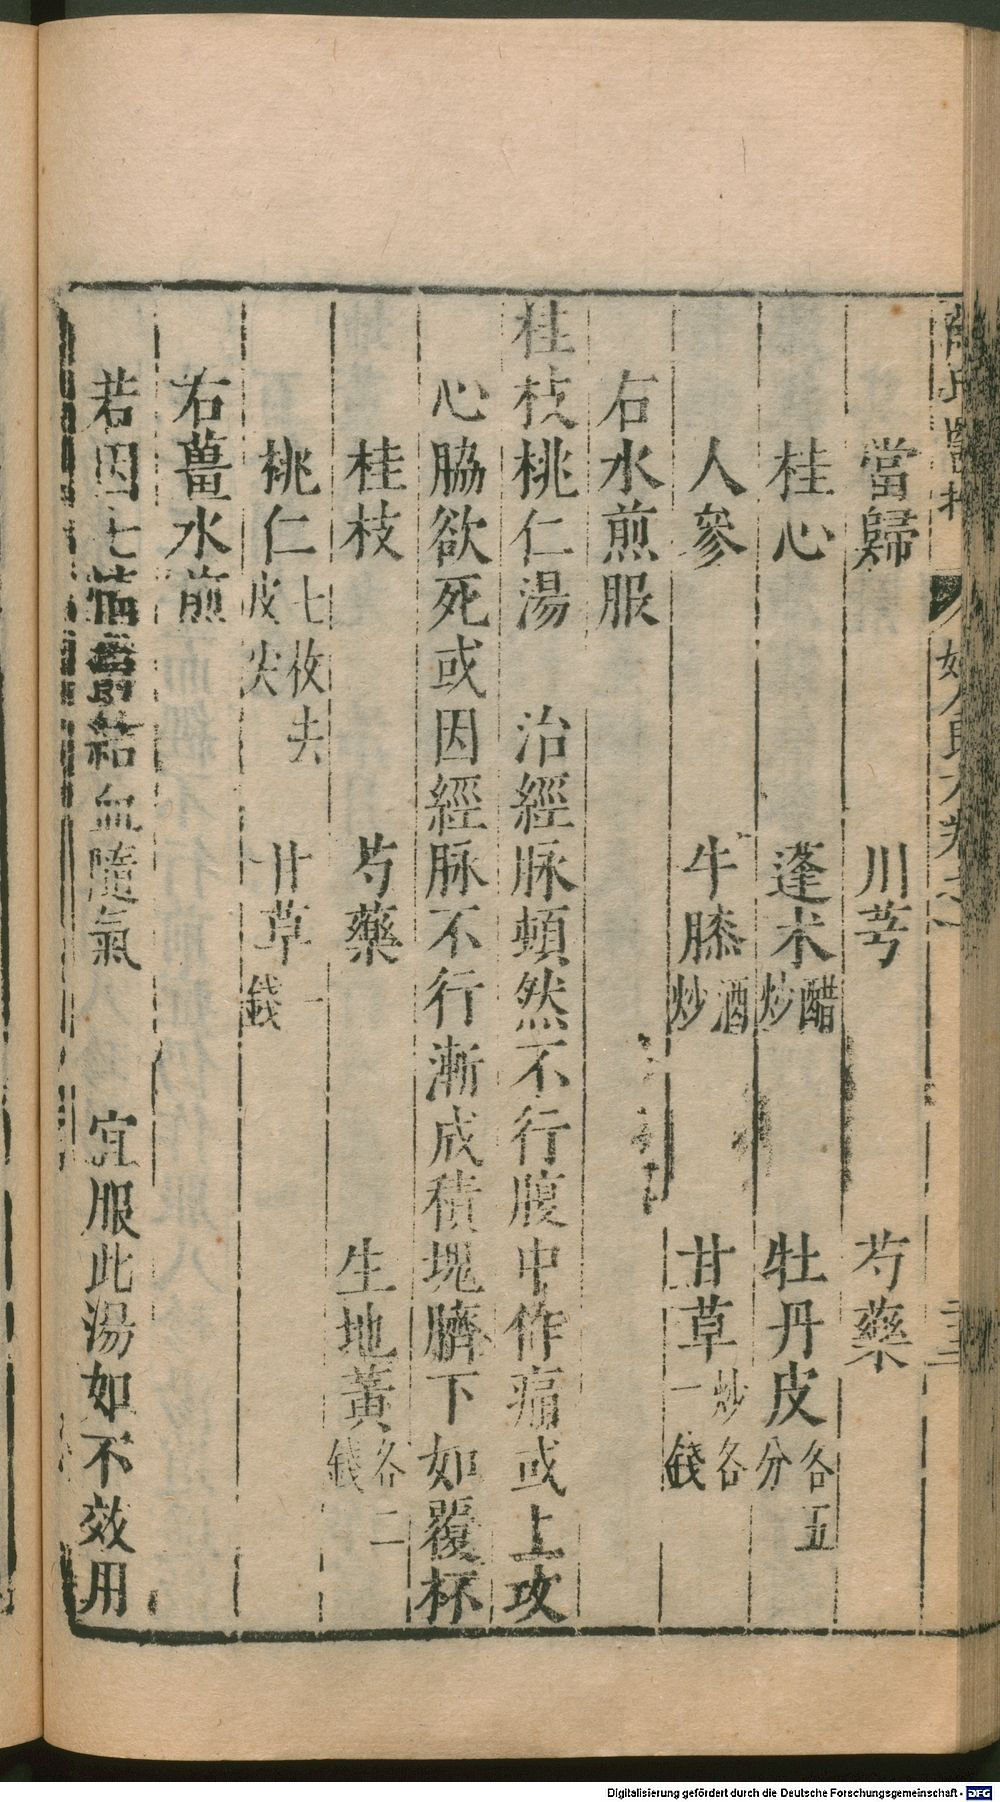 當歸 川芎 芍藥
桂心 蓬朮醋炒 牡丹皮各五分
人參 牛膝酒炒 甘草炒各一錢
右水煎服
桂枝桃仁湯 治經脉頓然不行腹中作痛或上攻
心脇欲死或因經脉不行漸成積塊臍下如覆杯
桂枝 芍藥 生地黃各二錢
桃仁七枚去皮尖 甘草一錢
右薑水煎
若因七情 結血隨氣 宜服此湯如不效用
Digitalisierung gefördert durch die Deutsche Forschungsgemeinschaft - DFG